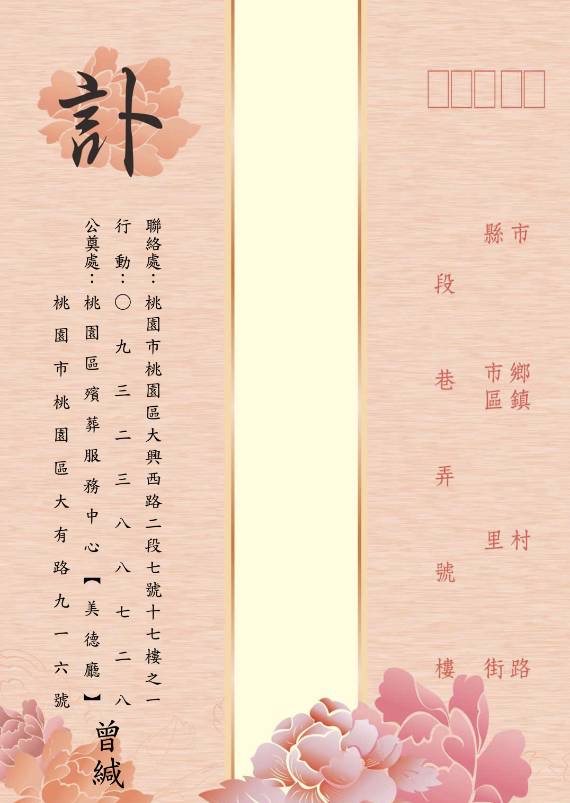 市 鄉鎮 村 路
縣 市區 里 街
段 巷 弄 號 樓
訃
聯絡處：桃園市桃園區大興西路二段七號十七樓之一
行動：〇九三二三八八七二八
公奠處：桃園區殯葬服務中心【美德廳】
桃園市桃園區大有路九一六號
曾緘